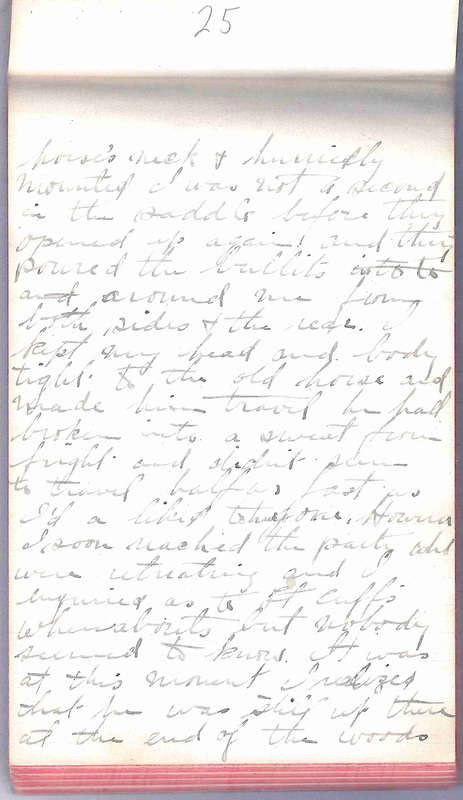 25
horse's neck & hurriedly
mounted I was not a second
in the saddle before they
opened up again! and they
poured the bullits into to
and around me from
both sides & the rear. I
kept my head and body
tight to the old horse and
made him travel he had
broken into a sweat from
fright and didn't seem
to travel half as fast as
I'd a liked. However
I soon reached the party who
were retreating and I
enquired as to Lt Cuffs
whereabouts but nobody
seemed to know. It was
at this moment I realized
that he was still up there
at the end of the woods